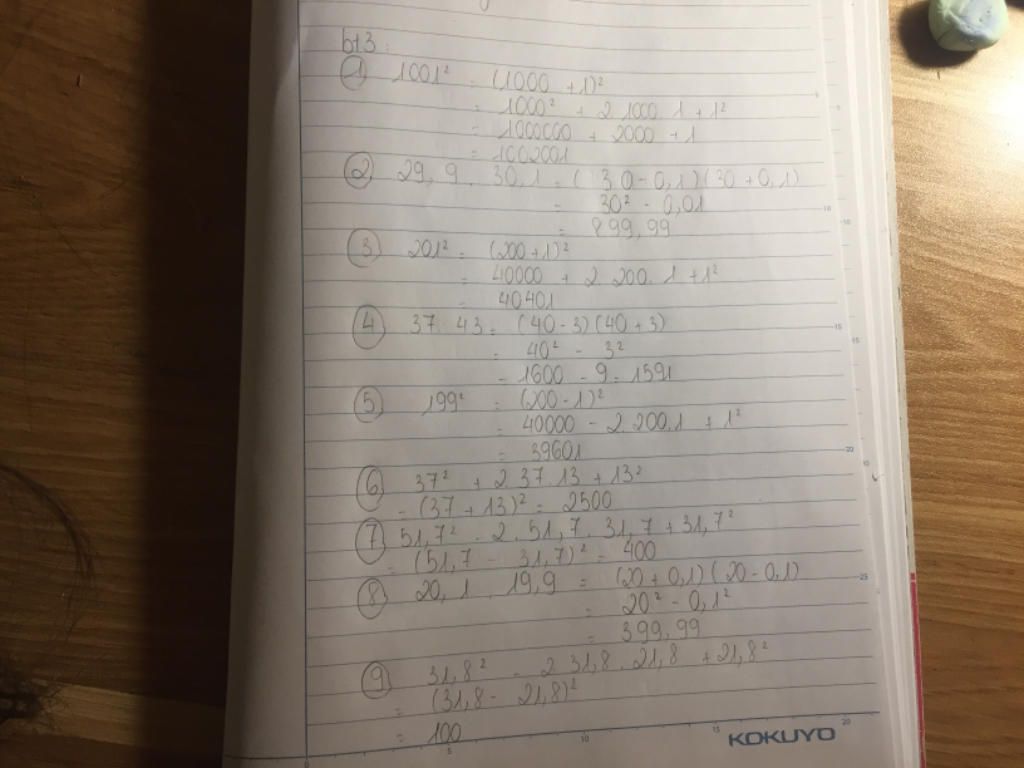 bt3:
① 1001² = (1000 + 1)²
= 1000² + 2.1000.1 + 1²
= 1000000 + 2000 + 1
= 1002001
② 29,9 . 30,1 = (30 - 0,1)(30 + 0,1)
= 30² - 0,01
= 899,99
③ 201² = (200+1)²
= 40000 + 2.200.1 + 1²
= 40401
④ 37.43 = (40-3)(40+3)
= 40² - 3²
= 1600 - 9 = 1591
⑤ 199² = (200-1)²
= 40000 - 2.200.1 + 1²
= 39601
⑥ 37² + 2.37.13 + 13²
= (37 + 13)² = 2500
⑦ 51,7² - 2.51,7.31,7 + 31,7²
= (51,7 - 31,7)² = 400
⑧ 20,1 . 19,9 = (20 + 0,1)(20 - 0,1)
= 20² - 0,1²
= 399,99
⑨ 31,8² - 2.31,8.21,8 + 21,8²
= (31,8 - 21,8)²
= 100
KOKUYO